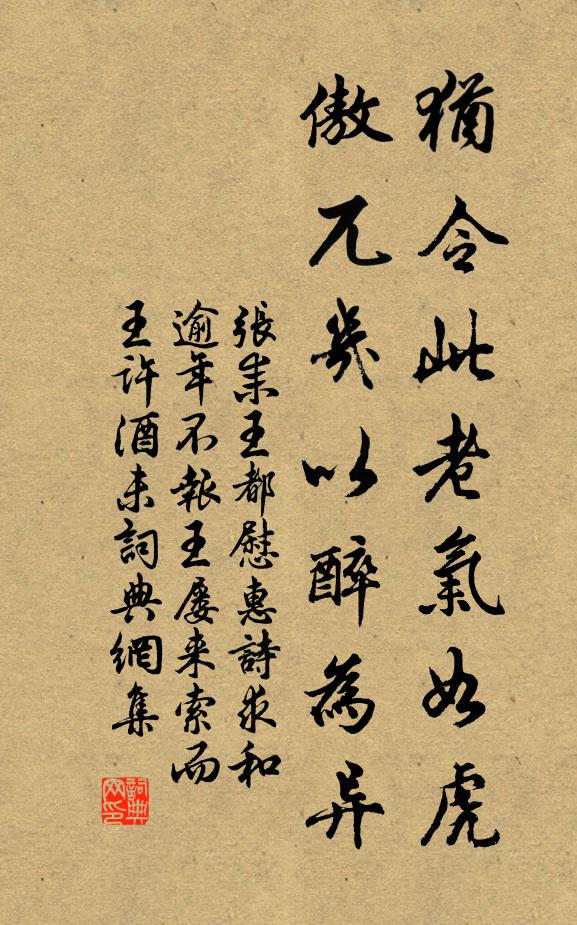 猶令此老氣如虎
傲兀幾以醉為异
張耒王都慰惠詩求和
逾年不報王屡来索而
王許酒未詞典網集
詞典网印